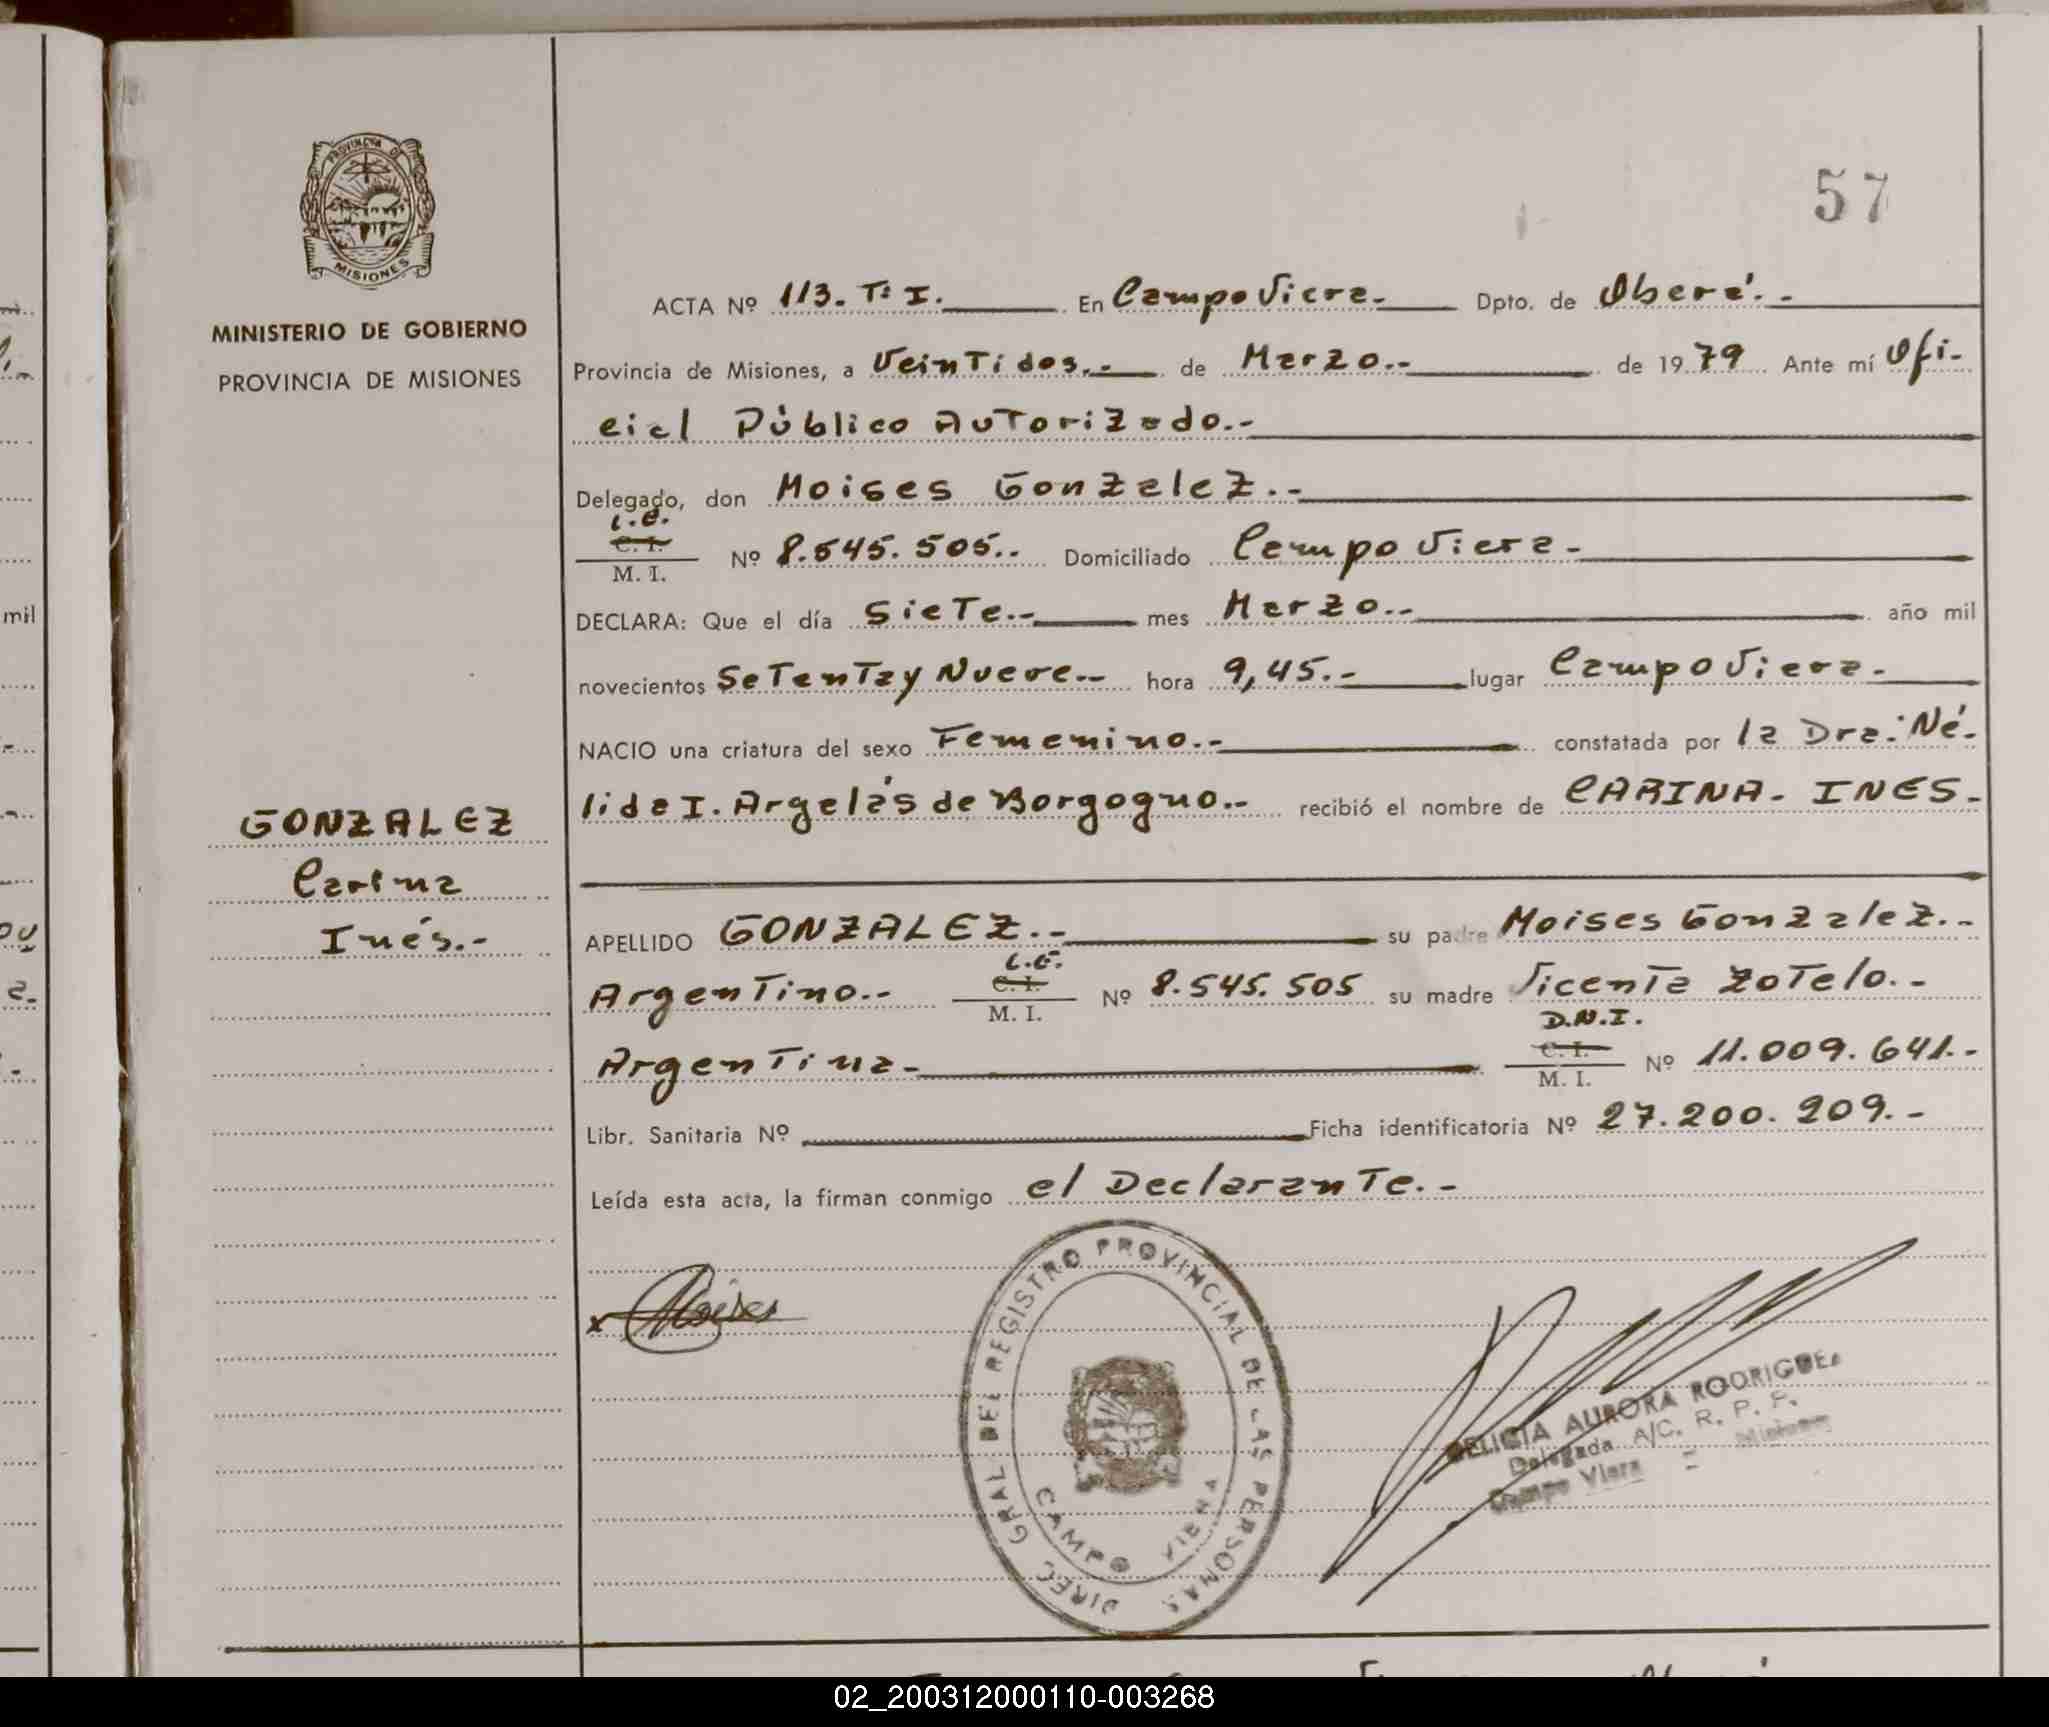 PROVINCIA DE
MISIONES
MINISTERIO DE GOBIERNO
PROVINCIA DE MISIONES
57
ACTA Nº 113. Tº I. En Campo Viera.- Dpto. de Oberá.-
Provincia de Misiones, a Veintidos.- de Marzo.- de 1979 Ante mí Ofi-
cial Público Autorizado.-
Delegado, don Moises Gonzalez.-
L.E.
C. I.
M. I. Nº 8.545.505.. Domiciliado Campo Viera-
DECLARA: Que el día Siete.- mes Marzo.- año mil
novecientos Setenta y Nueve.- hora 9,45.- lugar Campo Viera-
NACIO una criatura del sexo Femenino.- constatada por la Dra: Né-
lida I. Argelás de Borgogno.- recibió el nombre de CARINA- INES-
GONZALEZ
Carina
Inés.-
APELLIDO GONZALEZ.- su padre Moises Gonzalez.-
L.E.
Argentino.- C. I. Nº 8.545.505 su madre Vicenta Zotelo.-
M. I.
D.N.I.
Argentina- C. I. Nº 11.009.641.-
M. I.
Libr. Sanitaria Nº Ficha identificatoria Nº 27.200.209.-
Leída esta acta, la firman conmigo el Declarante.-
x Moises
DIREC GRAL DEL REGISTRO PROVINCIAL DE LAS PERSONAS
CAMPO VIERA
DELICIA AURORA RODRIGUEZ
Delegada A/C. R. P. P.
Campo Viera - Misiones
mil
02_200312000110-003268